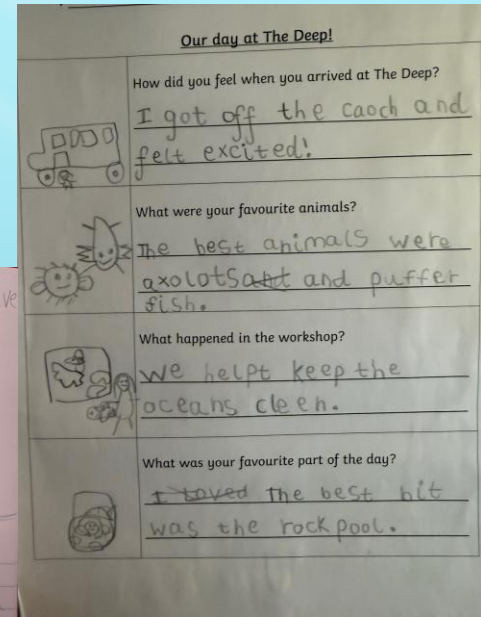 Our day at The Deep!
How did you feel when you arrived at The Deep?
I got off the caoch and
felt excited!
What were your favourite animals?
The best animals were
axolots and and puffer
fish.
What happened in the workshop?
We helpt keep the
oceans cleen.
What was your favourite part of the day?
I loved The best bit
was the rockpool.
ve